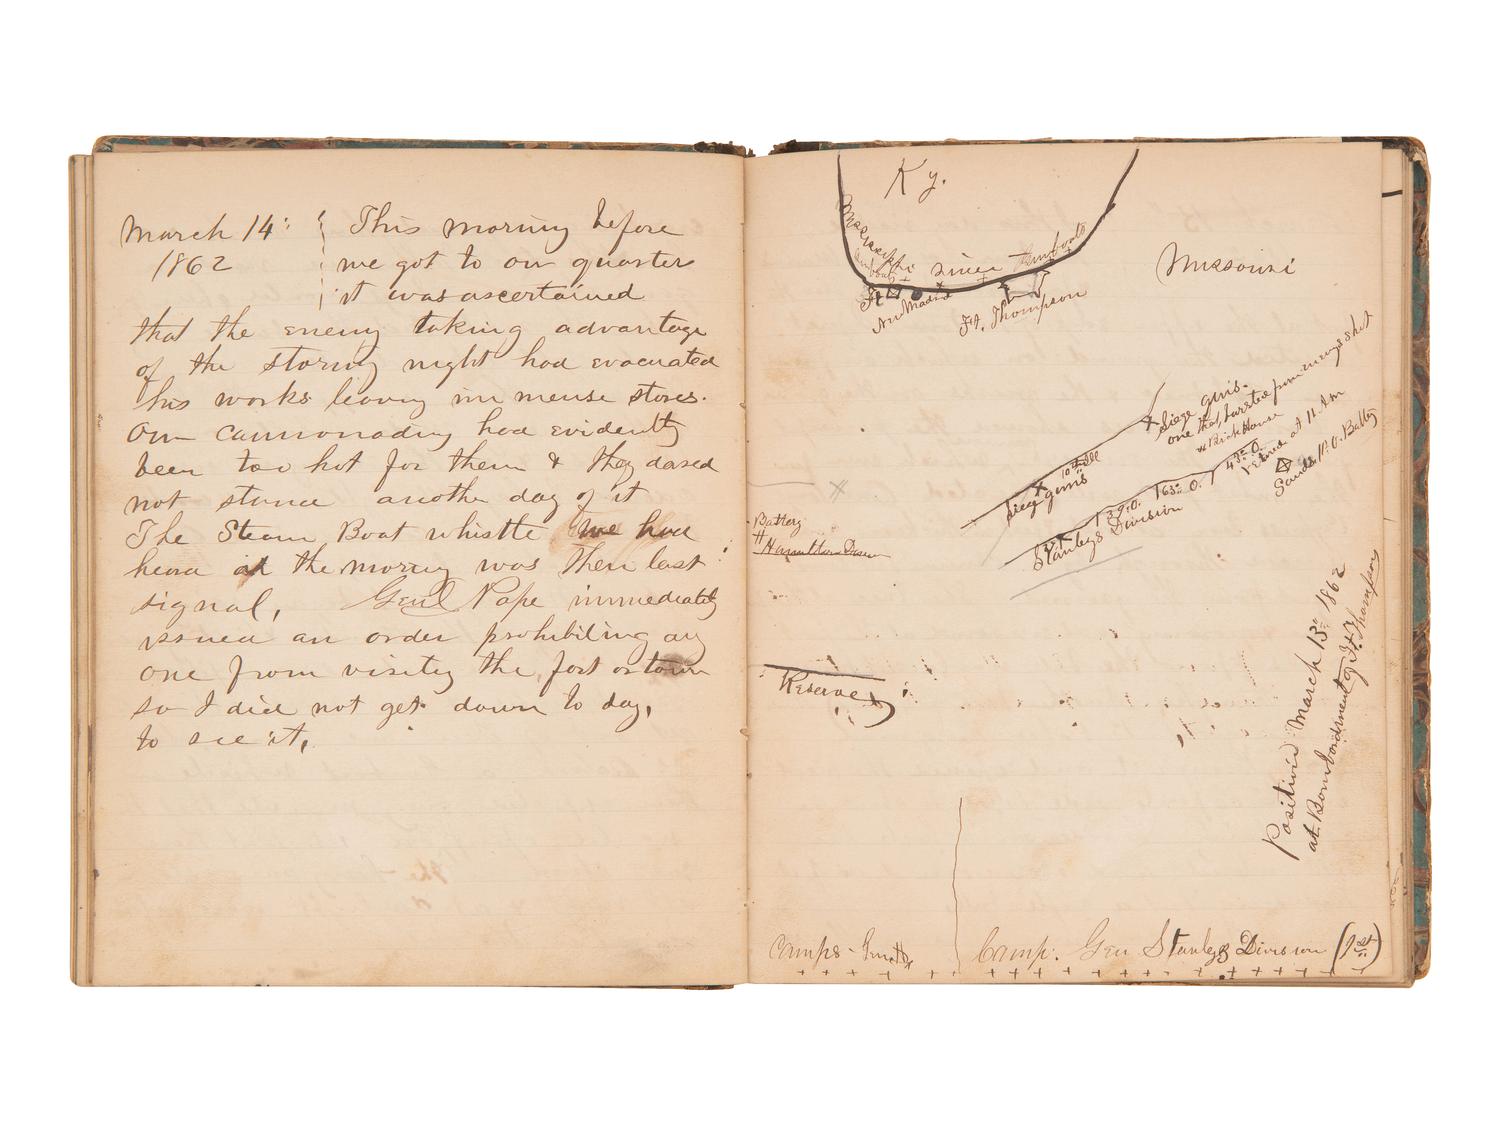 March 14: This morning before
1862 we got to our quarters
it was ascertained
that the enemy taking advantage
of the stormy night had evacuated
his works leaving immense stores.
Our cannonading had evidently
been too hot for them & they dared
not stand another day of it
The Steam Boat whistle we had
heard at the morning was their last
signal, Genl Pope immediately
issued an order prohibiting any
one from visiting the fort or town
so I did not get down to day,
to see it,
Ky.
Mississippi
river Gunboats
Missouri
Ft
Nu Madrid
Ft. Thompson
Siege guns.
one that bursted from enemys shot
Brick House
10th Ill
Siege guns
43d O.
retired at 11 A m
63d O.
39 O.
Stanleys Division
Sands 11. O. Battery
Battery
Hamilton Division
Reserve
Position March 13th 1862
at Bombardment of Ft. Thompson
Camps -
Camp. Gen Stanleys Division (1st)